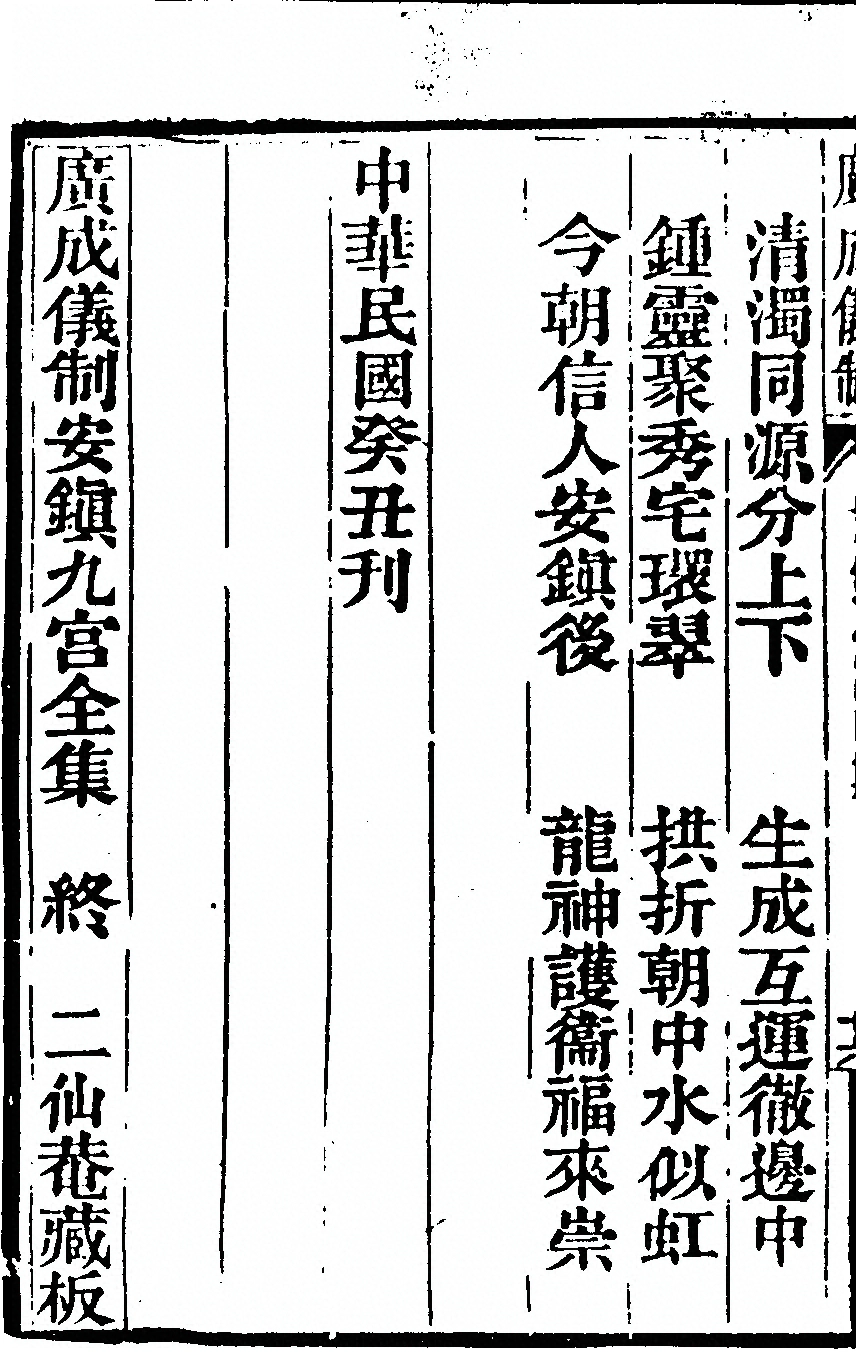 廣成儀制
清濁同源分上下　生成互運徹邊中
鍾靈聚秀宅環翠　拱折朝中水似虹
今朝信人安鎮後　龍神護衞福來崇
中華民國癸丑刊
廣成儀制安鎮九宮全集　終　二仙菴藏板